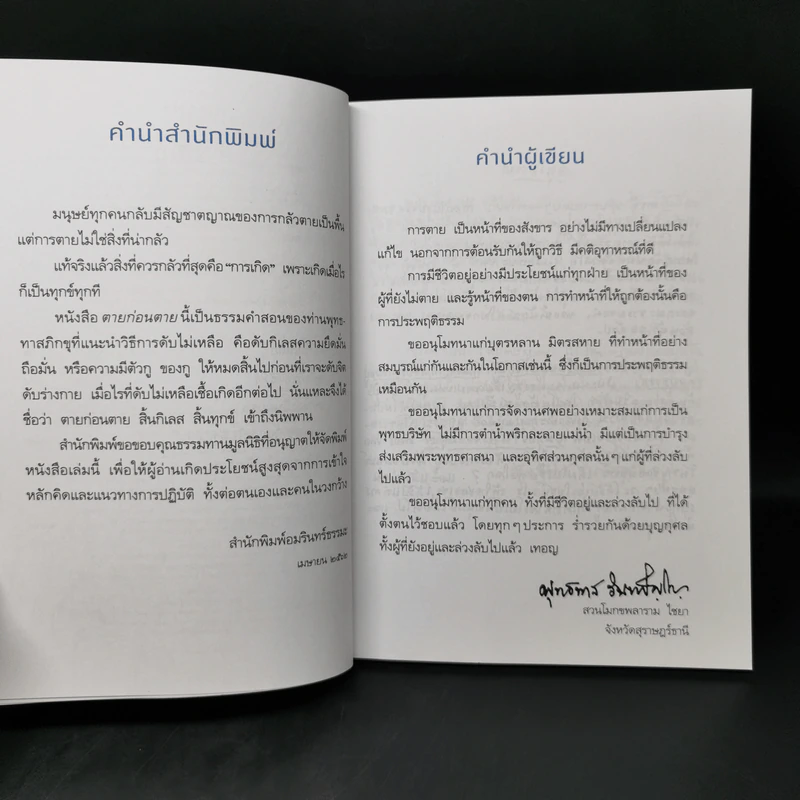 คำนำสำนักพิมพ์
มนุษย์ทุกคนกลับมีสัญชาตญาณของการกลัวตายเป็นพื้น
แต่การตายไม่ใช่สิ่งที่น่ากลัว
แท้จริงแล้วสิ่งที่ควรกลัวที่สุดคือ “การเกิด” เพราะเกิดเมื่อไร
ก็เป็นทุกข์ทุกที
หนังสือ ตายก่อนตาย นี้เป็นธรรมคำสอนของท่านพุทธ-
ทาสภิกขุที่แนะนำวิธีการดับไม่เหลือ คือดับกิเลสความยึดมั่น
ถือมั่น หรือความมีตัวกู ของกู ให้หมดสิ้นไปก่อนที่เราจะดับจิต
ดับร่างกาย เมื่อไรที่ดับไม่เหลือเชื้อเกิดอีกต่อไป นั่นแหละจึงได้
ชื่อว่า ตายก่อนตาย สิ้นกิเลส สิ้นทุกข์ เข้าถึงนิพพาน
สำนักพิมพ์ขอขอบคุณธรรมทานมูลนิธิที่อนุญาตให้จัดพิมพ์
หนังสือเล่มนี้ เพื่อให้ผู้อ่านเกิดประโยชน์สูงสุดจากการเข้าใจ
หลักคิดและแนวทางการปฏิบัติ ทั้งต่อตนเองและคนในวงกว้าง
สำนักพิมพ์อมรินทร์ธรรมะ
เมษายน ๒๕๖๒
คำนำผู้เขียน
การตาย เป็นหน้าที่ของสังขาร อย่างไม่มีทางเปลี่ยนแปลง
แก้ไข นอกจากการต้อนรับกันให้ถูกวิธี มีคติอุทาหรณ์ที่ดี
การมีชีวิตอยู่อย่างมีประโยชน์แก่ทุกฝ่าย เป็นหน้าที่ของ
ผู้ที่ยังไม่ตาย และรู้หน้าที่ของตน การทำหน้าที่ให้ถูกต้องนั้นคือ
การประพฤติธรรม
ขออนุโมทนาแก่บุตรหลาน มิตรสหาย ที่ทำหน้าที่อย่าง
สมบูรณ์แก่กันและกันในโอกาสเช่นนี้ ซึ่งก็เป็นการประพฤติธรรม
เหมือนกัน
ขออนุโมทนาแก่การจัดงานศพอย่างเหมาะสมแก่การเป็น
พุทธบริษัท ไม่มีการตำน้ำพริกละลายแม่น้ำ มีแต่เป็นการบำรุง
ส่งเสริมพระพุทธศาสนา และอุทิศส่วนกุศลนั้น ๆ แก่ผู้ที่ล่วงลับ
ไปแล้ว
ขออนุโมทนาแก่ทุกคน ทั้งที่มีชีวิตอยู่และล่วงลับไป ที่ได้
ตั้งตนไว้ชอบแล้ว โดยทุก ๆ ประการ ร่ำรวยกันด้วยบุญกุศล
ทั้งผู้ที่ยังอยู่และล่วงลับไปแล้ว เทอญ
พุทธทาส อินทปัญโญ
สวนโมกขพลาราม ไชยา
จังหวัดสุราษฎร์ธานี